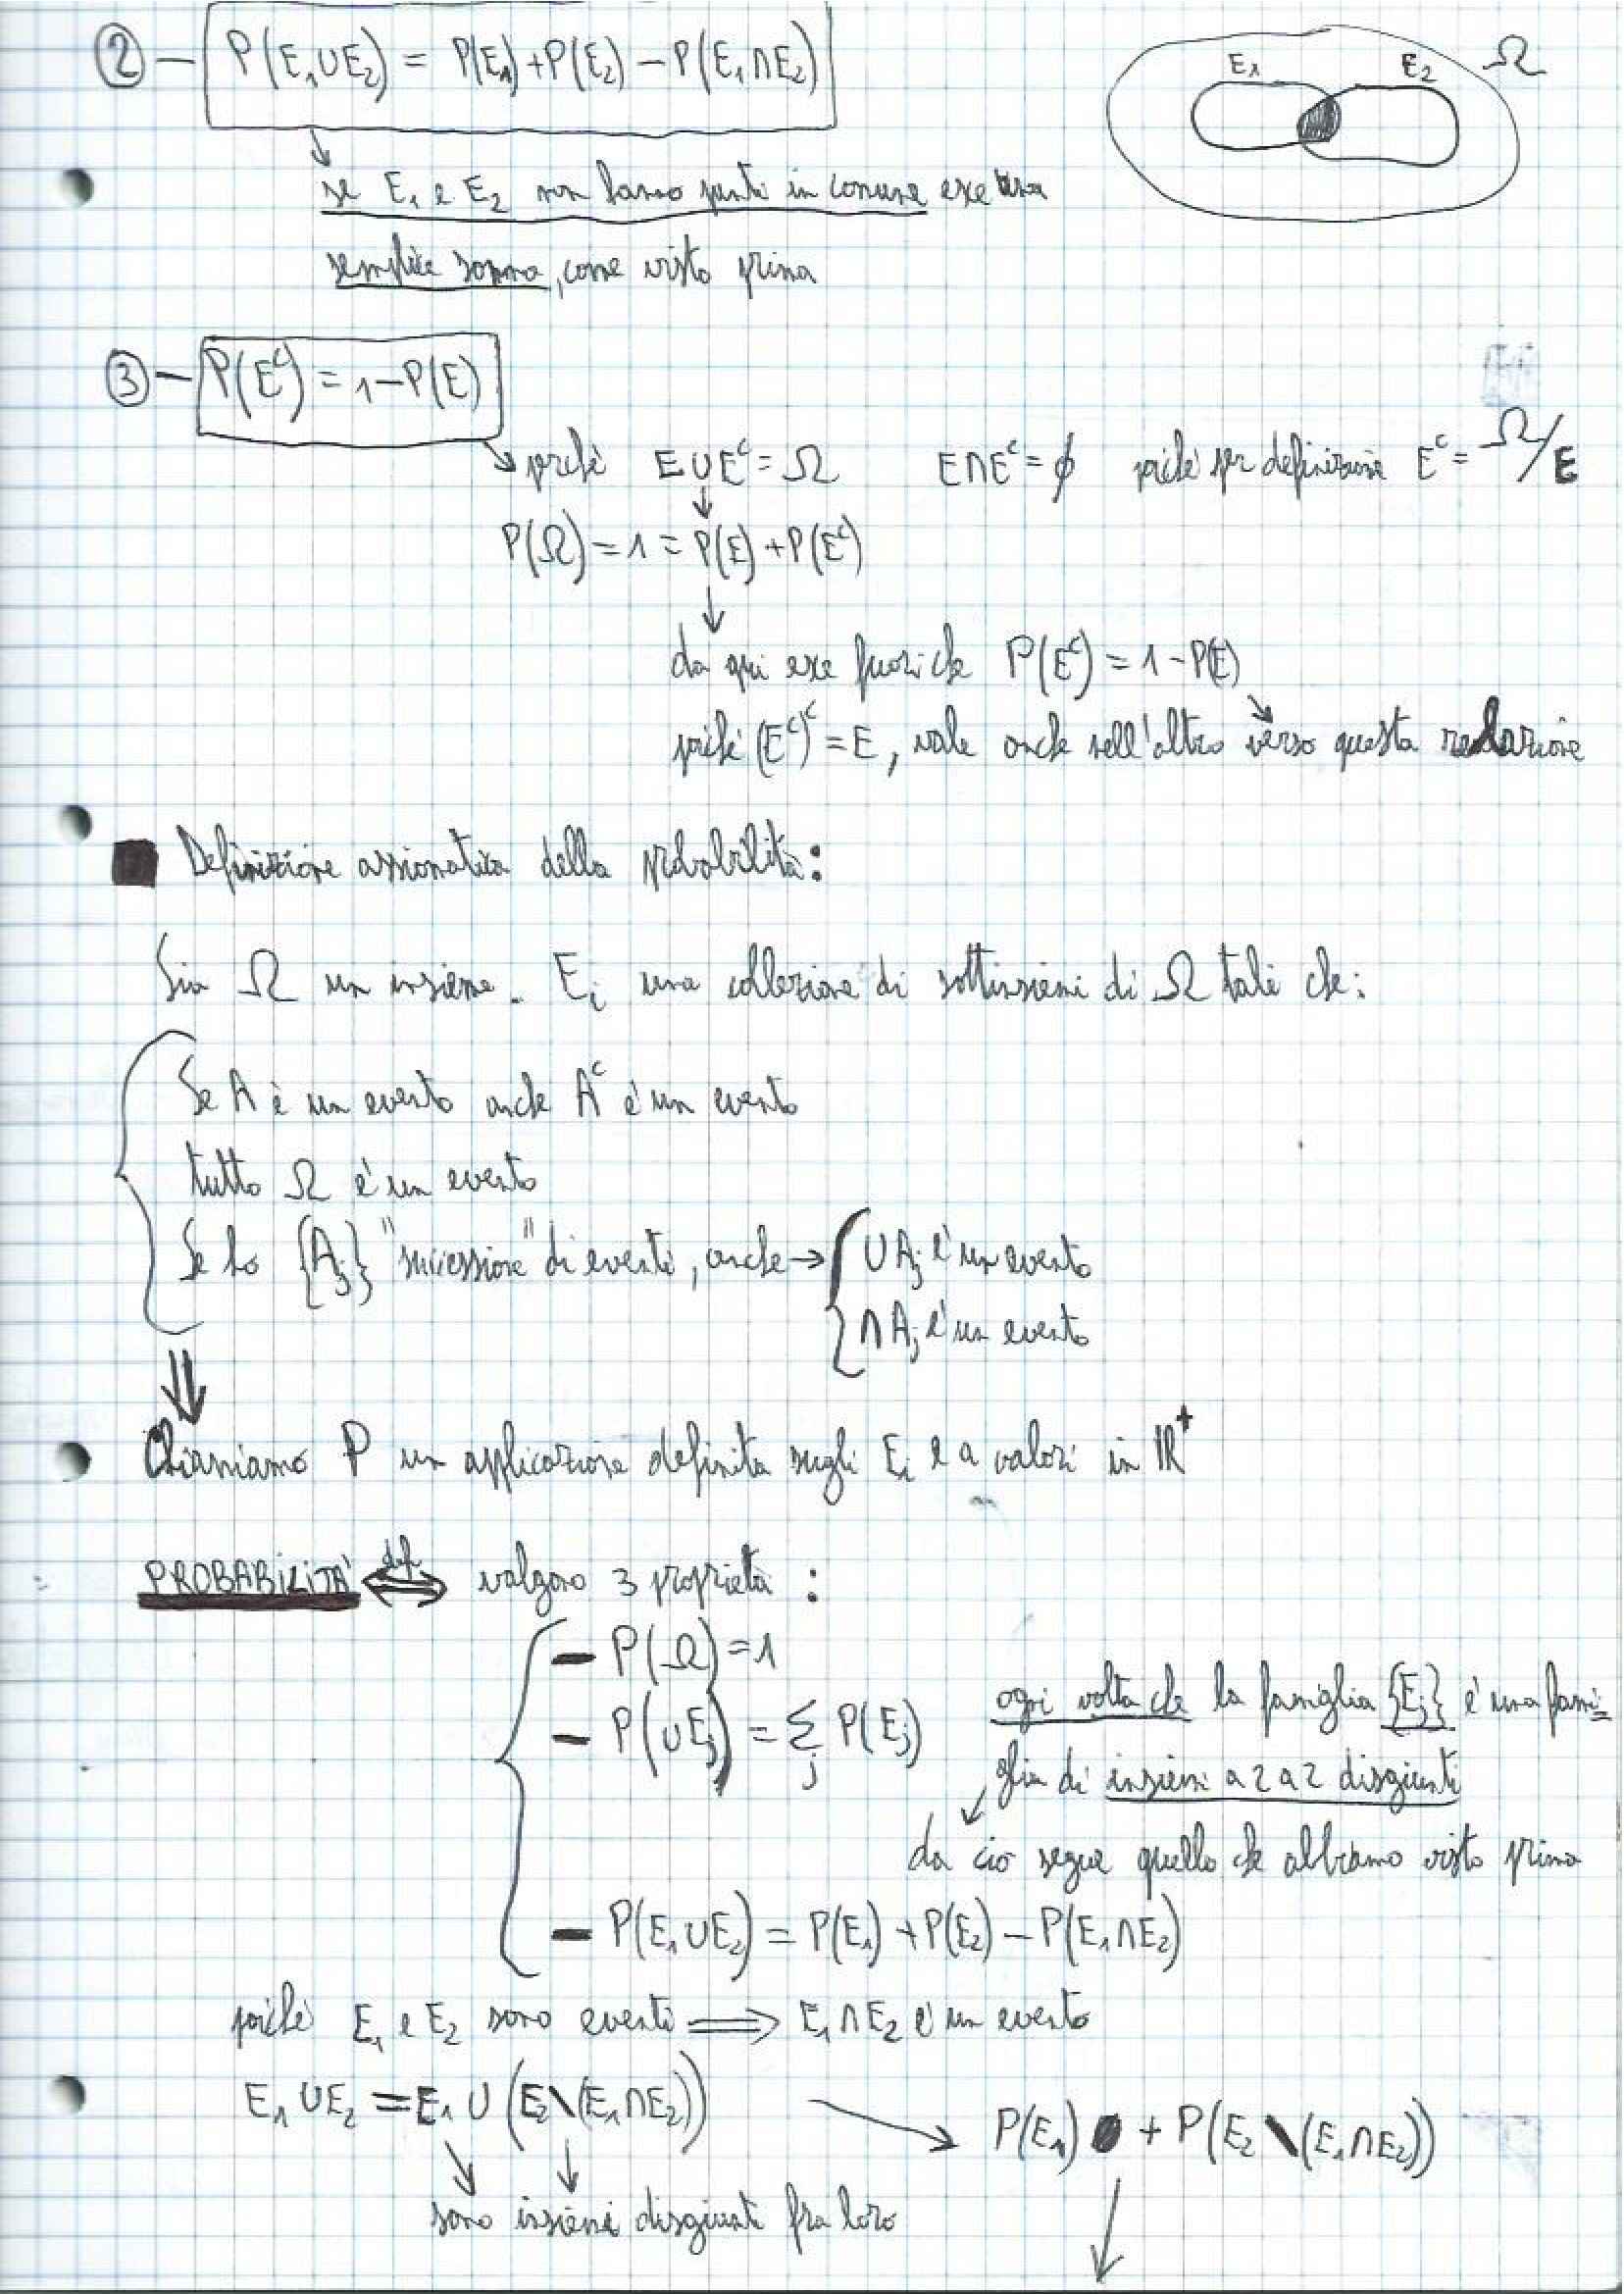 ② - P(E₁∪E₂) = P(E₁)+P(E₂) - P(E₁∩E₂)
E₁ E₂ Ω
se E₁ e E₂ non hanno punti in comune esce una
semplice somma, come visto prima
③ - P(Eᶜ) = 1-P(E)
poiché E∪Eᶜ = Ω E∩Eᶜ = ∅ poiché per definizione Eᶜ = Ω/E
P(Ω) = 1 = P(E) + P(Eᶜ)
da qui esce fuori che P(Eᶜ) = 1-P(E)
poiché (Eᶜ)ᶜ = E, vale anche nell'altro verso questa relazione
■ Definizione assiomatica della probabilità:
Sia Ω un insieme. Eᵢ una collezione di sottinsiemi di Ω tali che:
Se A è un evento anche Aᶜ è un evento
tutto Ω è un evento
Se ho {Aⱼ} "successione" di eventi, anche → { ∪Aⱼ è un evento
∩Aⱼ è un evento
⇓
Chiamiamo P un applicazione definita sugli Eᵢ e a valori in ℝ⁺
PROBABILITÀ ⇔ def valgono 3 proprietà :
- P(Ω) = 1
- P(∪Eⱼ) = Σⱼ P(Eⱼ) ogni volta che la famiglia {Eⱼ} è una fami-
glia di insiemi a 2 a 2 disgiunti
da ciò segue quello che abbiamo visto prima
- P(E₁∪E₂) = P(E₁) + P(E₂) - P(E₁∩E₂)
poiché E₁ e E₂ sono eventi ⟹ E₁∩E₂ è un evento
E₁∪E₂ = E₁∪(E₂\(E₁∩E₂)) → P(E₁) + P(E₂\(E₁∩E₂))
sono insiemi disgiunti fra loro